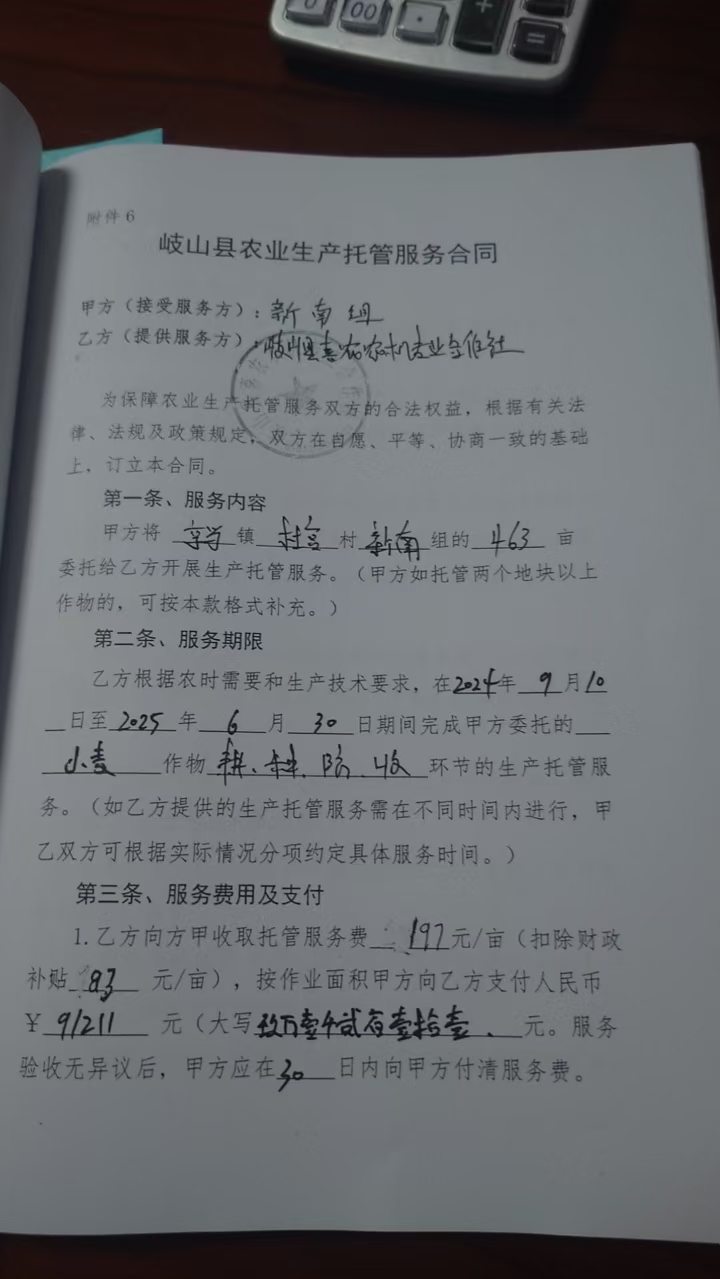 附件6
岐山县农业生产托管服务合同
甲方（接受服务方）：新南组
乙方（提供服务方）：岐山县喜农农机专业合作社
为保障农业生产托管服务双方的合法权益，根据有关法
律、法规及政策规定，双方在自愿、平等、协商一致的基础
上，订立本合同。
第一条、服务内容
甲方将 镇 村新南组的 463 亩
委托给乙方开展生产托管服务。（甲方如托管两个地块以上
作物的，可按本款格式补充。）
第二条、服务期限
乙方根据农时需要和生产技术要求，在2024年 9 月10
日至 2025 年 6 月 30 日期间完成甲方委托的
小麦 作物 耕、种、防、收 环节的生产托管服
务。（如乙方提供的生产托管服务需在不同时间内进行，甲
乙双方可根据实际情况分项约定具体服务时间。）
第三条、服务费用及支付
1.乙方向方甲收取托管服务费 197元/亩（扣除财政
补贴 83 元/亩），按作业面积甲方向乙方支付人民币
￥ 91211 元（大写玖万壹仟贰佰壹拾壹 元。服务
验收无异议后，甲方应在30日内向甲方付清服务费。
0
00
·
+
=